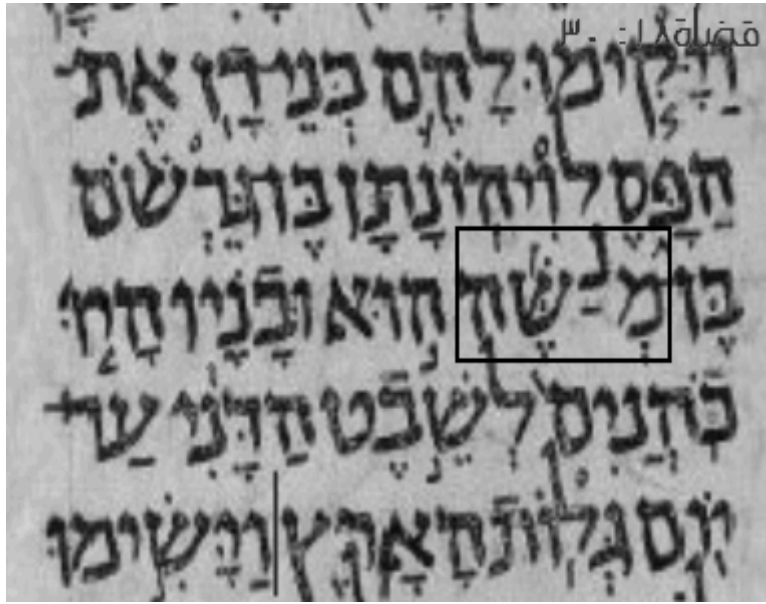 قضاة ١٨: ٣٠
וַיָּקִימוּ לָהֶם בְּנֵי־דָן אֶת־
הַפָּסֶל וִיהוֹנָתָן בֶּן־גֵּרְשֹׁם
בֶּן־מְנַשֶּׁה הוּא וּבָנָיו הָיוּ
כֹהֲנִים לְשֵׁבֶט הַדָּנִי עַד־
יוֹם גְּלוֹת הָאָרֶץ׃ וַיָּשִׂימוּ